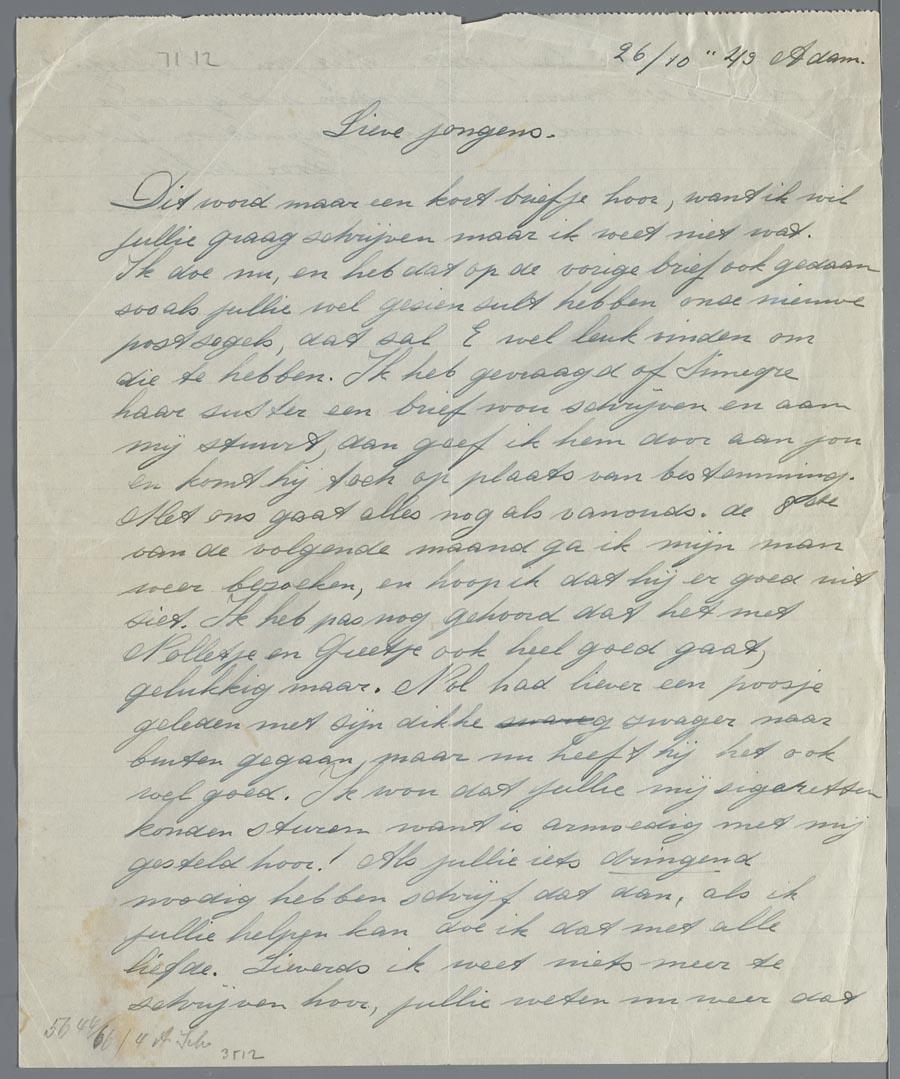 71 12
26/10 " 43 Adam.
Lieve jongens.
Dit word maar een kort briefje hoor, want ik wil
jullie graag schrijven maar ik weet niet wat.
Ik doe nu, en heb dat op de vorige brief ook gedaan
sooals jullie wel gesien sult hebben onse nieuwe
postsegels, dat sal E wel leuk vinden om
die te hebben. Ik heb gevraagd of
haar suster een brief wou schrijven en aan
mij stuurt, dan geef ik hem door aan jou
en komt hij toch op plaats van bestemming.
Met ons gaat alles nog als vanouds. de 8ste
van de volgende maand ga ik mijn man
weer bezoeken, en hoop ik dat hij er goed uit
siet. Ik heb pas nog gehoord dat het met
Nolletje en Greetje ook heel goed gaat,
gelukkig maar. Nol had liever een poosje
geleden met sijn dikke swager naar
buiten gegaan, maar nu heeft hij het ook
wel goed. Ik wou dat jullie mij sigaretten
konden sturen want is armoedig met mij
gesteld hoor! Als jullie iets dringend
noodig hebben schrijf dat dan, als ik
jullie helpen kan doe ik dat met alle
liefde. Lieverds ik weet niets meer te
schrijven hoor, jullie weten nu weer dat
3512